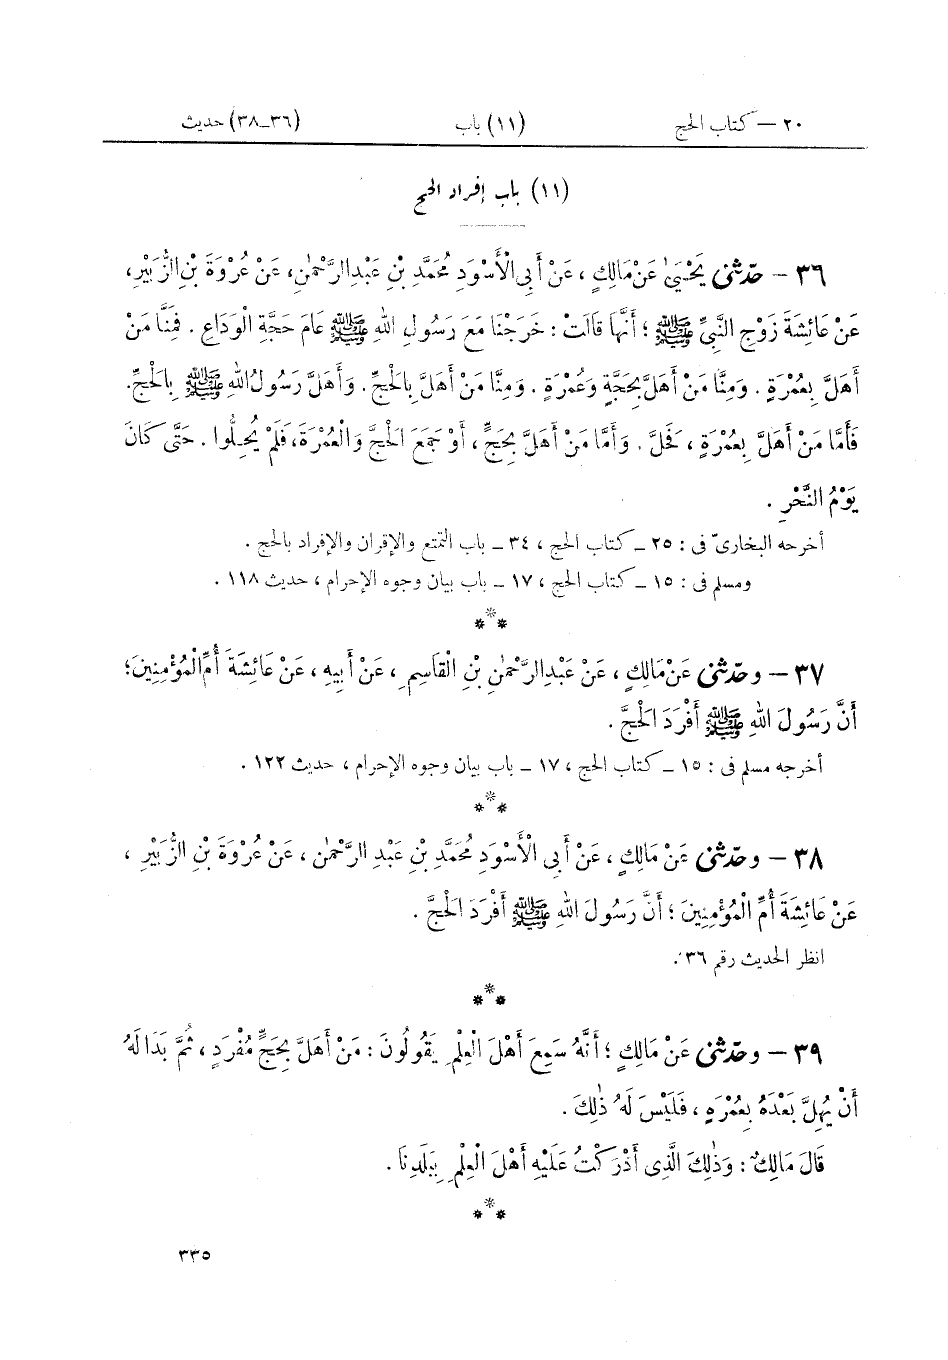 ٢٠ — كتاب الحج (١١) باب (٣٦ـ٣٨) حديث
(١١) باب إفراد الحج
٣٦ - حدّثنى يَحْيَىٰ عَنْ مَالِكٍ ، عَنْ أَبِى الْأَسْوَدِ مُحَمَّدِ بْنِ عَبْدِ الرَّحْمٰنِ، عَنْ عُرْوَةَ بْنِ الزُّبَيْرِ،
عَنْ عَائِشَةَ زَوْجِ النَّبِىِّ ﷺ ؛ أَنَّهَا قَالَتْ : خَرَجْنَا مَعَ رَسُولِ اللهِ ﷺ عَامَ حَجَّةِ الْوَدَاعِ . فَمِنَّا مَنْ
أَهَلَّ بِعُمْرَةٍ . وَمِنَّا مَنْ أَهَلَّ بِحَجَّةٍ وَعُمْرَةٍ . وَمِنَّا مَنْ أَهَلَّ بِالْحَجِّ. وَأَهَلَّ رَسُولُ اللهِ ﷺ بِالْحَجِّ.
فَأَمَّا مَنْ أَهَلَّ بِعُمْرَةٍ ، فَحَلَّ . وَأَمَّا مَنْ أَهَلَّ بِحَجٍّ ، أَوْ جَمَعَ الْحَجَّ وَالْعُمْرَةَ، فَلَمْ يُحِلُّوا . حَتَّى كَانَ
يَوْمُ النَّحْرِ .
أخرجه البخارىّ فى : ٢٥ ـ كتاب الحج ، ٣٤ ـ باب التمتع والإقران والإفراد بالحج .
ومسلم فى : ١٥ ـ كتاب الحج ، ١٧ ـ باب بيان وجوه الإحرام ، حديث ١١٨ .
***
٣٧ - وحدّثنى عَنْ مَالِكٍ ، عَنْ عَبْدِ الرَّحْمٰنِ بْنِ الْقَاسِمِ ، عَنْ أَبِيهِ ، عَنْ عَائِشَةَ أُمِّ الْمُؤْمِنِينَ؛
أَنَّ رَسُولَ اللهِ ﷺ أَفْرَدَ الْحَجَّ .
أخرجه مسلم فى : ١٥ ـ كتاب الحج ، ١٧ ـ باب بيان وجوه الإحرام ، حديث ١٢٢ .
***
٣٨ - وحدّثنى عَنْ مَالِكٍ ، عَنْ أَبِى الْأَسْوَدِ مُحَمَّدِ بْنِ عَبْدِ الرَّحْمٰنِ ، عَنْ عُرْوَةَ بْنِ الزُّبَيْرِ ،
عَنْ عَائِشَةَ أُمِّ الْمُؤْمِنِينَ ؛ أَنَّ رَسُولَ اللهِ ﷺ أَفْرَدَ الْحَجَّ .
انظر الحديث رقم ٣٦.
***
٣٩ - وحدّثنى عَنْ مَالِكٍ ؛ أَنَّهُ سَمِعَ أَهْلَ الْعِلْمِ يَقُولُونَ : مَنْ أَهَلَّ بِحَجٍّ مُفْرَدٍ ، ثُمَّ بَدَا لَهُ
أَنْ يُهِلَّ بَعْدَهُ بِعُمْرَةٍ ، فَلَيْسَ لَهُ ذٰلِكَ .
قَالَ مَالِكٌ : وَذٰلِكَ الَّذِى أَدْرَكْتُ عَلَيْهِ أَهْلَ الْعِلْمِ بِبَلَدِنَا .
***
٣٣٥